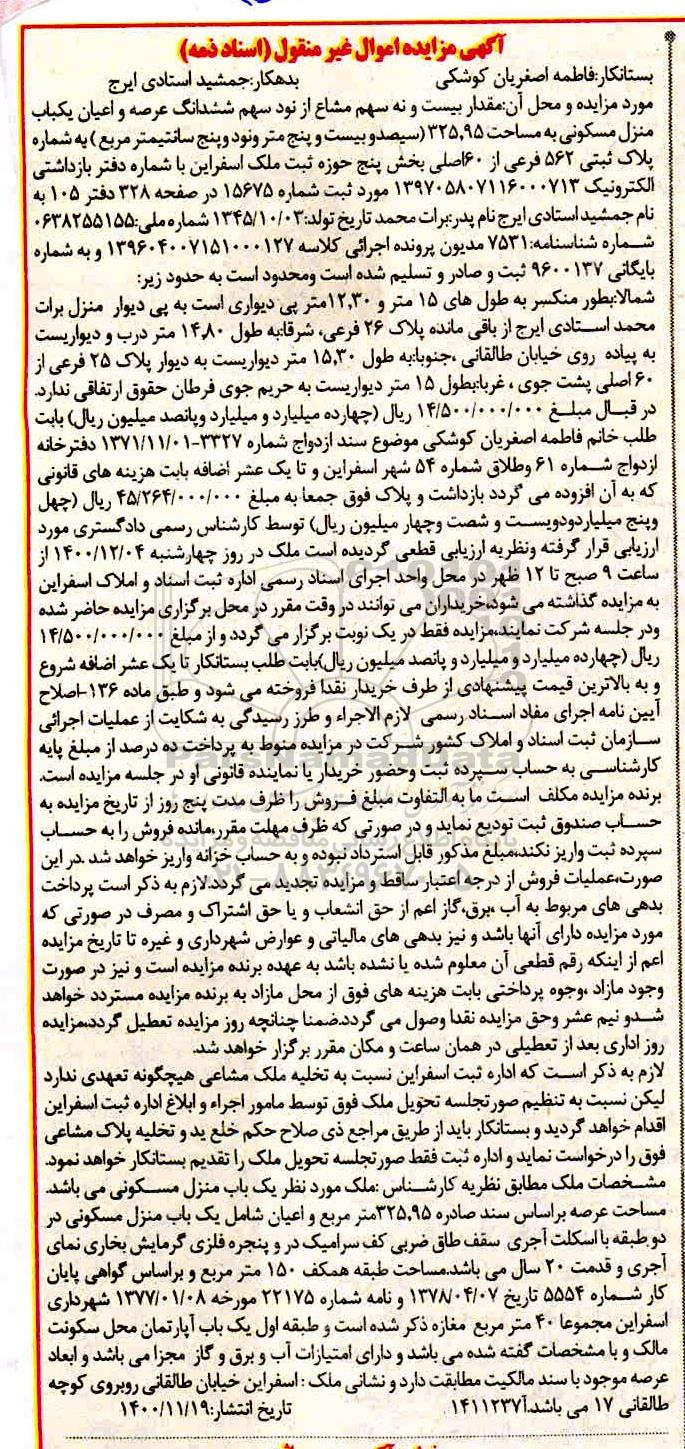 آگهی مزایده اموال غیر منقول (اسناد ذمه)
بستانکار:فاطمه اصغریان کوشکی بدهکار:جمشید استادی ایرج
مورد مزایده و محل آن:مقدار بیست و نه سهم مشاع از نود سهم ششدانگ عرصه و اعیان یکباب
منزل مسکونی به مساحت ۳۲۵,۹۵ (سیصدو بیست و پنج متر ونود وپنج سانتیمتر مربع ) به شماره
پلاک ثبتی ۵۶۲ فرعی از ۶۰اصلی بخش پنج حوزه ثبت ملک اسفراین با شماره دفتر بازداشتی
الکترونیک ۱۳۹۷۰۵۸۰۷۱۱۶۰۰۰۷۱۳ مورد ثبت شماره ۱۵۶۷۵ در صفحه ۳۲۸ دفتر ۱۰۵ به
نام جمشید استادی ایرج نام پدر:برات محمد تاریخ تولد:۱۳۴۵/۱۰/۰۳ شماره ملی:۰۶۳۸۲۵۵۱۵۵
شماره شناسنامه:۷۵۳۱ مدیون پرونده اجرائی کلاسه ۱۳۹۶۰۴۰۰۷۱۵۱۰۰۰۱۲۷ و به شماره
بایگانی ۹۶۰۰۱۳۷ ثبت و صادر و تسلیم شده است ومحدود است به حدود زیر:
شمالا:بطور منکسر به طول های ۱۵ متر و ۱۲,۳۰متر پی دیواری است به پی دیوار منزل برات
محمد استادی ایرج از باقی مانده پلاک ۲۶ فرعی، شرقا:به طول ۱۴,۸۰ متر درب و دیواریست
به پیاده روی خیابان طالقانی ،جنوبا:به طول ۱۵,۳۰ متر دیواریست به دیوار پلاک ۲۵ فرعی از
۶۰ اصلی پشت جوی ، غربا:بطول ۱۵ متر دیواریست به حریم جوی فرطان حقوق ارتفاقی ندارد.
در قبال مبلغ ۱۴/۵۰۰/۰۰۰/۰۰۰ ریال (چهارده میلیارد و میلیارد وپانصد میلیون ریال) بابت
طلب خانم فاطمه اصغریان کوشکی موضوع سند ازدواج شماره ۳۳۲۷-۱۳۷۱/۱۱/۰۱ دفترخانه
ازدواج شماره ۶۱ وطلاق شماره ۵۴ شهر اسفراین و تا یک عشر اضافه بابت هزینه های قانونی
که به آن افزوده می گردد بازداشت و پلاک فوق جمعا به مبلغ ۴۵/۲۶۴/۰۰۰/۰۰۰ ریال (چهل
وپنج میلیاردودویست و شصت وچهار میلیون ریال) توسط کارشناس رسمی دادگستری مورد
ارزیابی قرار گرفته ونظریه ارزیابی قطعی گردیده است ملک در روز چهارشنبه ۱۴۰۰/۱۲/۰۴ از
ساعت ۹ صبح تا ۱۲ ظهر در محل واحد اجرای اسناد رسمی اداره ثبت اسناد و املاک اسفراین
به مزایده گذاشته می شود،خریداران می توانند در وقت مقرر در محل برگزاری مزایده حاضر شده
ودر جلسه شرکت نمایند،مزایده فقط در یک نوبت برگزار می گردد و از مبلغ ۱۴/۵۰۰/۰۰۰/۰۰۰
ریال (چهارده میلیارد و میلیارد و پانصد میلیون ریال)بابت طلب بستانکار تا یک عشر اضافه شروع
و به بالاترین قیمت پیشنهادی از طرف خریدار نقدا فروخته می شود و طبق ماده ۱۳۶-اصلاح
آیین نامه اجرای مفاد اسناد رسمی لازم الاجراء و طرز رسیدگی به شکایت از عملیات اجرائی
سازمان ثبت اسناد و املاک کشور شرکت در مزایده منوط به پرداخت ده درصد از مبلغ پایه
کارشناسی به حساب سپرده ثبت وحضور خریدار یا نماینده قانونی او در جلسه مزایده است.
برنده مزایده مکلف است ما به التفاوت مبلغ فروش را ظرف مدت پنج روز از تاریخ مزایده به
حساب صندوق ثبت تودیع نماید و در صورتی که ظرف مهلت مقرر،مانده فروش را به حساب
سپرده ثبت واریز نکند،مبلغ مذکور قابل استرداد نبوده و به حساب خزانه واریز خواهد شد .در این
صورت،عملیات فروش از درجه اعتبار ساقط و مزایده تجدید می گردد.لازم به ذکر است پرداخت
بدهی های مربوط به آب ،برق،گاز اعم از حق انشعاب و یا حق اشتراک و مصرف در صورتی که
مورد مزایده دارای آنها باشد و نیز بدهی های مالیاتی و عوارض شهرداری و غیره تا تاریخ مزایده
اعم از اینکه رقم قطعی آن معلوم شده یا نشده باشد به عهده برنده مزایده است و نیز در صورت
وجود مازاد ،وجوه پرداختی بابت هزینه های فوق از محل مازاد به برنده مزایده مسترد خواهد
شدو نیم عشر وحق مزایده نقدا وصول می گردد.ضمنا چنانچه روز مزایده تعطیل گردد،مزایده
روز اداری بعد از تعطیلی در همان ساعت و مکان مقرر برگزار خواهد شد.
لازم به ذکر است که اداره ثبت اسفراین نسبت به تخلیه ملک مشاعی هیچگونه تعهدی ندارد
لیکن نسبت به تنظیم صورتجلسه تحویل ملک فوق توسط مامور اجراء و ابلاغ اداره ثبت اسفراین
اقدام خواهد گردید و بستانکار باید از طریق مراجع ذی صلاح حکم خلع ید و تخلیه پلاک مشاعی
فوق را درخواست نماید و اداره ثبت فقط صورتجلسه تحویل ملک را تقدیم بستانکار خواهد نمود.
مشخصات ملک مطابق نظریه کارشناس :ملک مورد نظر یک باب منزل مسکونی می باشد.
مساحت عرصه براساس سند صادره ۳۲۵,۹۵متر مربع و اعیان شامل یک باب منزل مسکونی در
دو طبقه با اسکلت آجری سقف طاق ضربی کف سرامیک در و پنجره فلزی گرمایش بخاری نمای
آجری و قدمت ۲۰ سال می باشد.مساحت طبقه همکف ۱۵۰ متر مربع و براساس گواهی پایان
کار شماره ۵۵۵۴ تاریخ ۱۳۷۸/۰۴/۰۷ و نامه شماره ۲۲۱۷۵ مورخه ۱۳۷۷/۰۱/۰۸ شهرداری
اسفراین مجموعا ۴۰ متر مربع مغازه ذکر شده است و طبقه اول یک باب آپارتمان محل سکونت
مالک و با مشخصات گفته شده می باشد و دارای امتیازات آب و برق و گاز مجزا می باشد و ابعاد
عرصه موجود با سند مالکیت مطابقت دارد و نشانی ملک : اسفراین خیابان طالقانی روبروی کوچه
طالقانی ۱۷ می باشد.آ۱۴۱۱۲۳۷ تاریخ انتشار:۱۴۰۰/۱۱/۱۹
ParsNamadData
پایگاه اطلاع رسانی مناقصه و مزایده